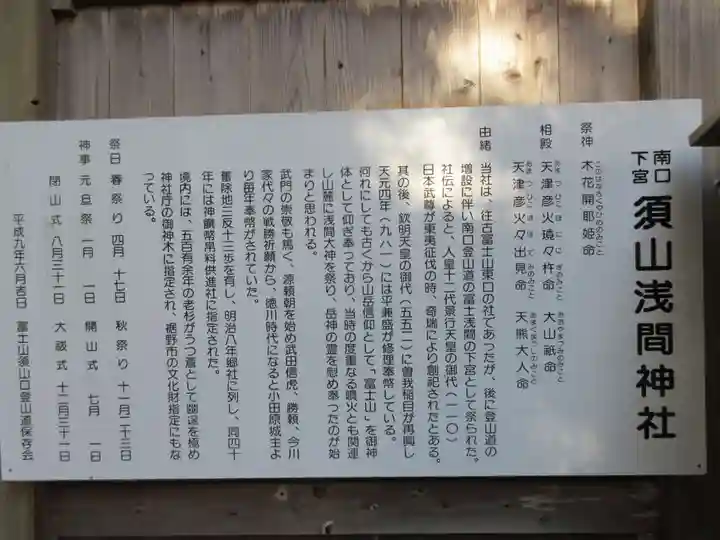 南口
下宮
須山浅間神社
祭神 木花開耶姫命
このはなさくやひめのみこと
相殿 天津彦火瓊々杵命 大山祇命
あまつひこほににぎのみこと おおやまずみのみこと
天津彦火々出見命 天熊大人命
あまつひこほほでみのみこと あまくまうしのみこと
由緒 当社は、往古富士山東口の社であつたが、後に登山道の
増設に伴い南口登山道の富士浅間の下宮として祭られた。
社伝によると、人皇十二代景行天皇の御代(一一〇)
日本武尊が東夷征伐の時、奇瑞により創祀されたとある。
其の後、欽明天皇の御代(五五二)に曽我稲目が再興し
天元四年(九八一)には平兼盛が修理奉幣している。
何れにしても古くから山岳信仰として「富士山」を御神
体として仰ぎ奉っており、当時の度重なる噴火とも関連
し山麓に浅間大神を祭り、岳神の霊を慰め奉つたのが始
まりと思われる。
武門の崇敬も篤く、源頼朝を始め武田信虎、勝頼、今川
家代々の戦勝祈願から、徳川時代になると小田原城主よ
り毎年奉幣がされていた。
除地三反十三歩を有し、明治八年郷社に列し、同四十
年には神饌幣帛料供進社に指定された。
境内には、五百有余年の老杉がうつ蒼として幽邃を極め
神社庁の御神木に指定され、裾野市の文化財指定にもな
つている。
祭日 春祭り 四月 十七日 秋祭り 十一月二十三日
神事 元旦祭 一月 一日 開山式 七月 一日
閉山式 八月三十一日 大祓式 十二月三十一日
平成九年六月吉日 富士山須山口登山道保存会